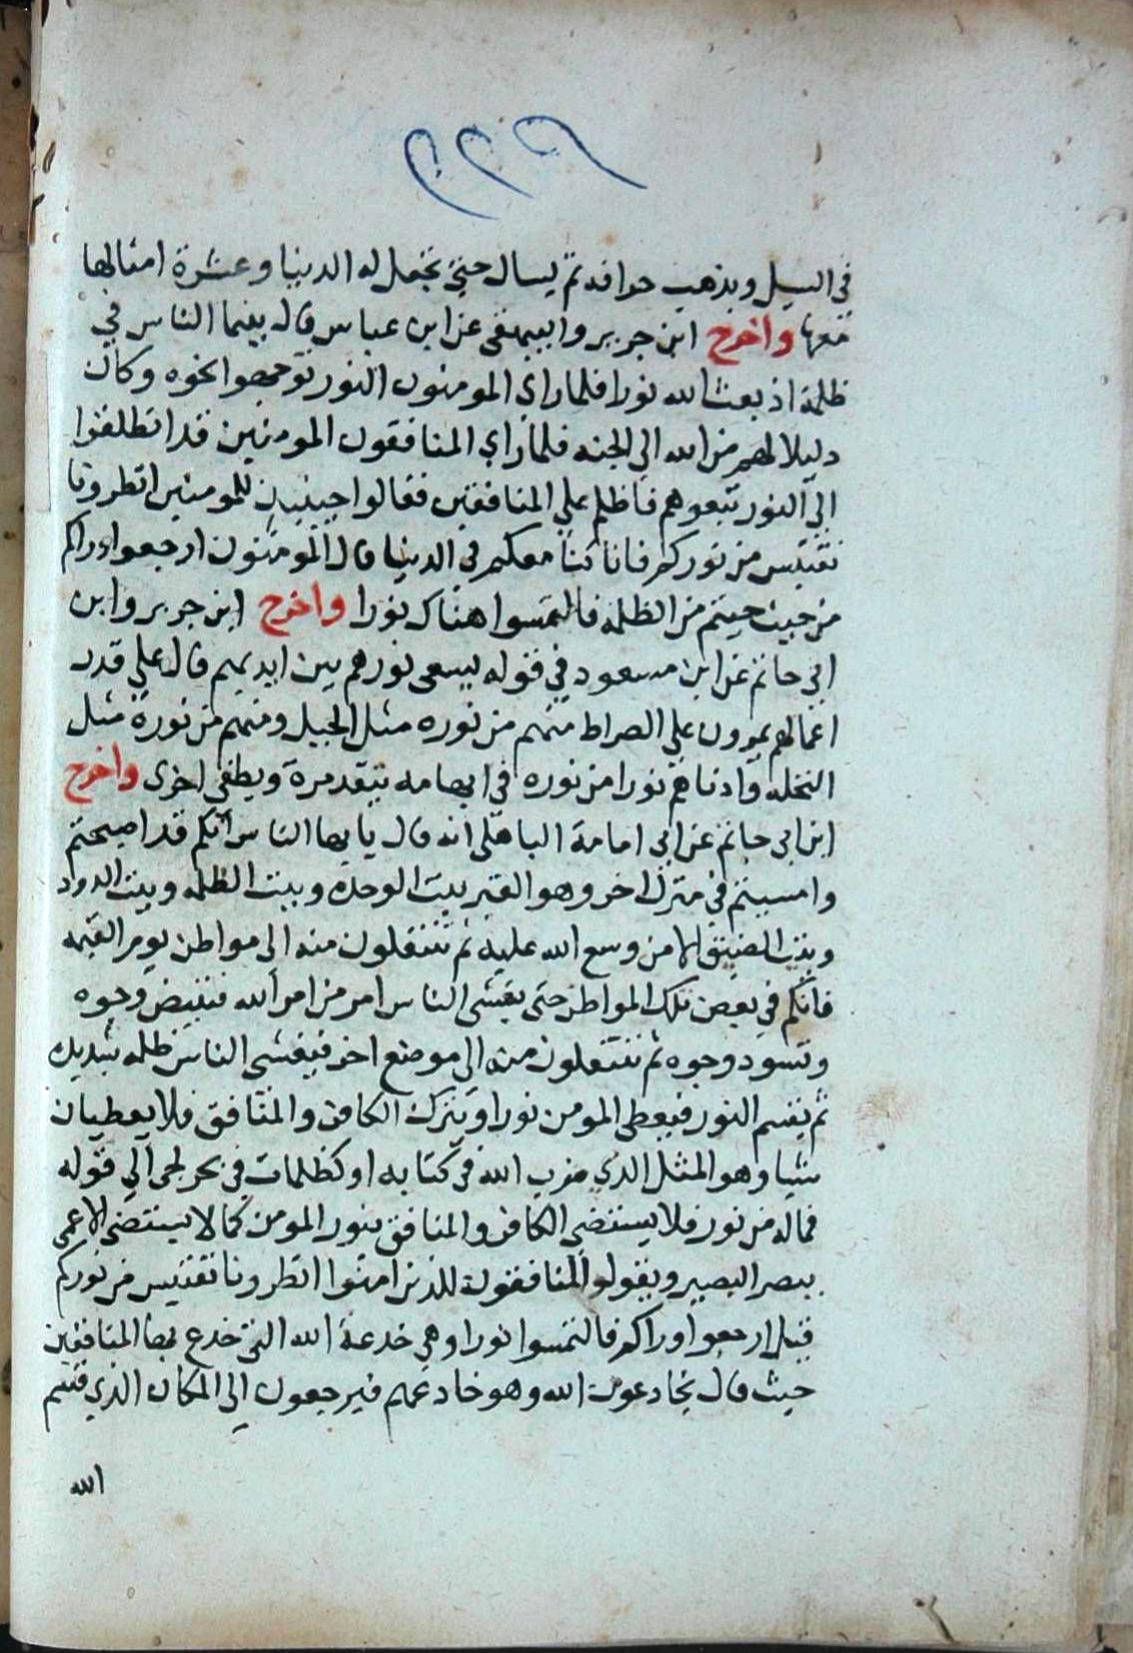 في السيل ويذهب حراقه ثم يسال حتي يجعل له الدنيا وعشرة امثالها
معها واخرج ابن جرير والبيهقى عن ابن عباس قال بينما الناس في
ظلمة اذ بعث الله نورا فلما راى المومنون النور توجهوا نحوه وكان
دليلا لهم من الله الي الجنه فلما راي المنافقون المومنين قد انطلقوا
الي النور تبعوهم فاظلم علي المنافقين فقالوا حينيذ للمومنين انظرونا
نقتبس من نوركم فانا كنا معكم في الدنيا قال المومنون ارجعوا وراكم
من حيث جيتم من الظلمه فالتمسوا هناك نورا واخرج ابن جرير وابن
ابي حاتم عن ابن مسعود في قوله يسعى نورهم بين ايديهم قال علي قدر
اعمالهم يمرون علي الصراط منهم من نوره مثل الجبل ومنهم من نوره مثل
النخله وادناهم نورا من نوره في ابهامه يتقد مرة ويطفي اخرى واخرج
ابن ابي حاتم عن ابي امامة الباهلى انه قال يا يها الناس انكم قد اصبحتم
وامسيتم في منزل اخر وهو القبر بيت الوحدة وبيت الظلمه وبيت الدود
وبيت الضيق الا من وسع الله عليه ثم تنتقلون منه الي مواطن يوم القيمه
فانكم في بعض تلك المواطن حتى يغشى الناس امر من امر الله فتبيض وجوه
وتسود وجوه ثم تنتقلون منه الى موضع اخر فيغشى الناس ظلمه شديده
ثم يقسم النور فيعطى المومن نورا ويترك الكافر والمنافق فلا يعطيان
شيا وهو المثل الذي ضرب الله في كتابه او كظلمات في بحر لجى الي قوله
فماله من نور فلا يستضى الكافر والمنافق بنور المومن كما لا يستضى الاعمى
ببصر البصير ويقولوا المنافقون للذين امنوا انظرونا نقتبس من نوركم
قيل ارجعوا وراكم فالتمسوا نورا وهي خدعة الله التي خدع بها المنافقين
حيث قال يخادعون الله وهو خادعهم فيرجعون الي المكان الذي قسم
الله